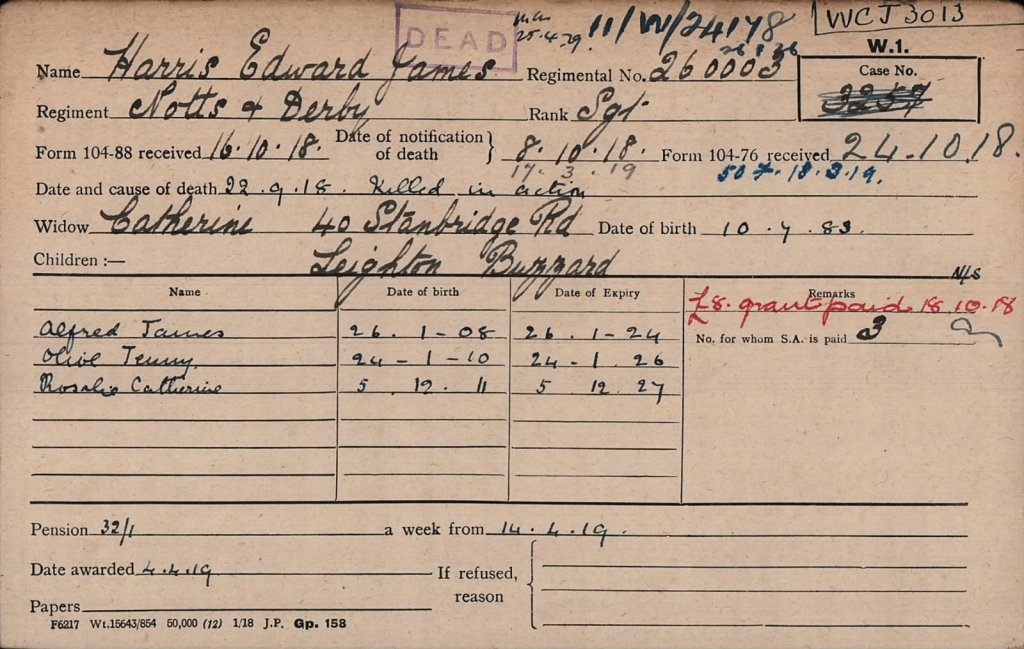 DEAD 25.4.29 11/W/24178 WCJ 3013
W.1.
Name Harris Edward James Regimental No. 260003 Case No. 3257
Regiment Notts & Derby Rank Sgt
Form 104-88 received 16.10.18. Date of notification of death } 8.10.18. Form 104-76 received 24.10.18.
17.3.19 18.3.19.
Date and cause of death 22.9.18. Killed in action
Widow Catherine 40 Stanbridge Rd Date of birth 10.7.83.
Children :— Leighton Buzzard N/S
Name Date of birth Date of Expiry Remarks
£8. grant paid 18.10.18
Alfred James 26.1-08 26.1-24 No. for whom S.A. is paid 3
Olive Jenny 24-1-10 24-1 26
Rosalie Catherine 5.12.11 5 12.27
Pension 32/1 a week from 14.4.19.
Date awarded 4.4.19 If refused, reason
Papers
F6217 Wt.15643/854 50,000 (12) 1/18 J.P. Gp. 158